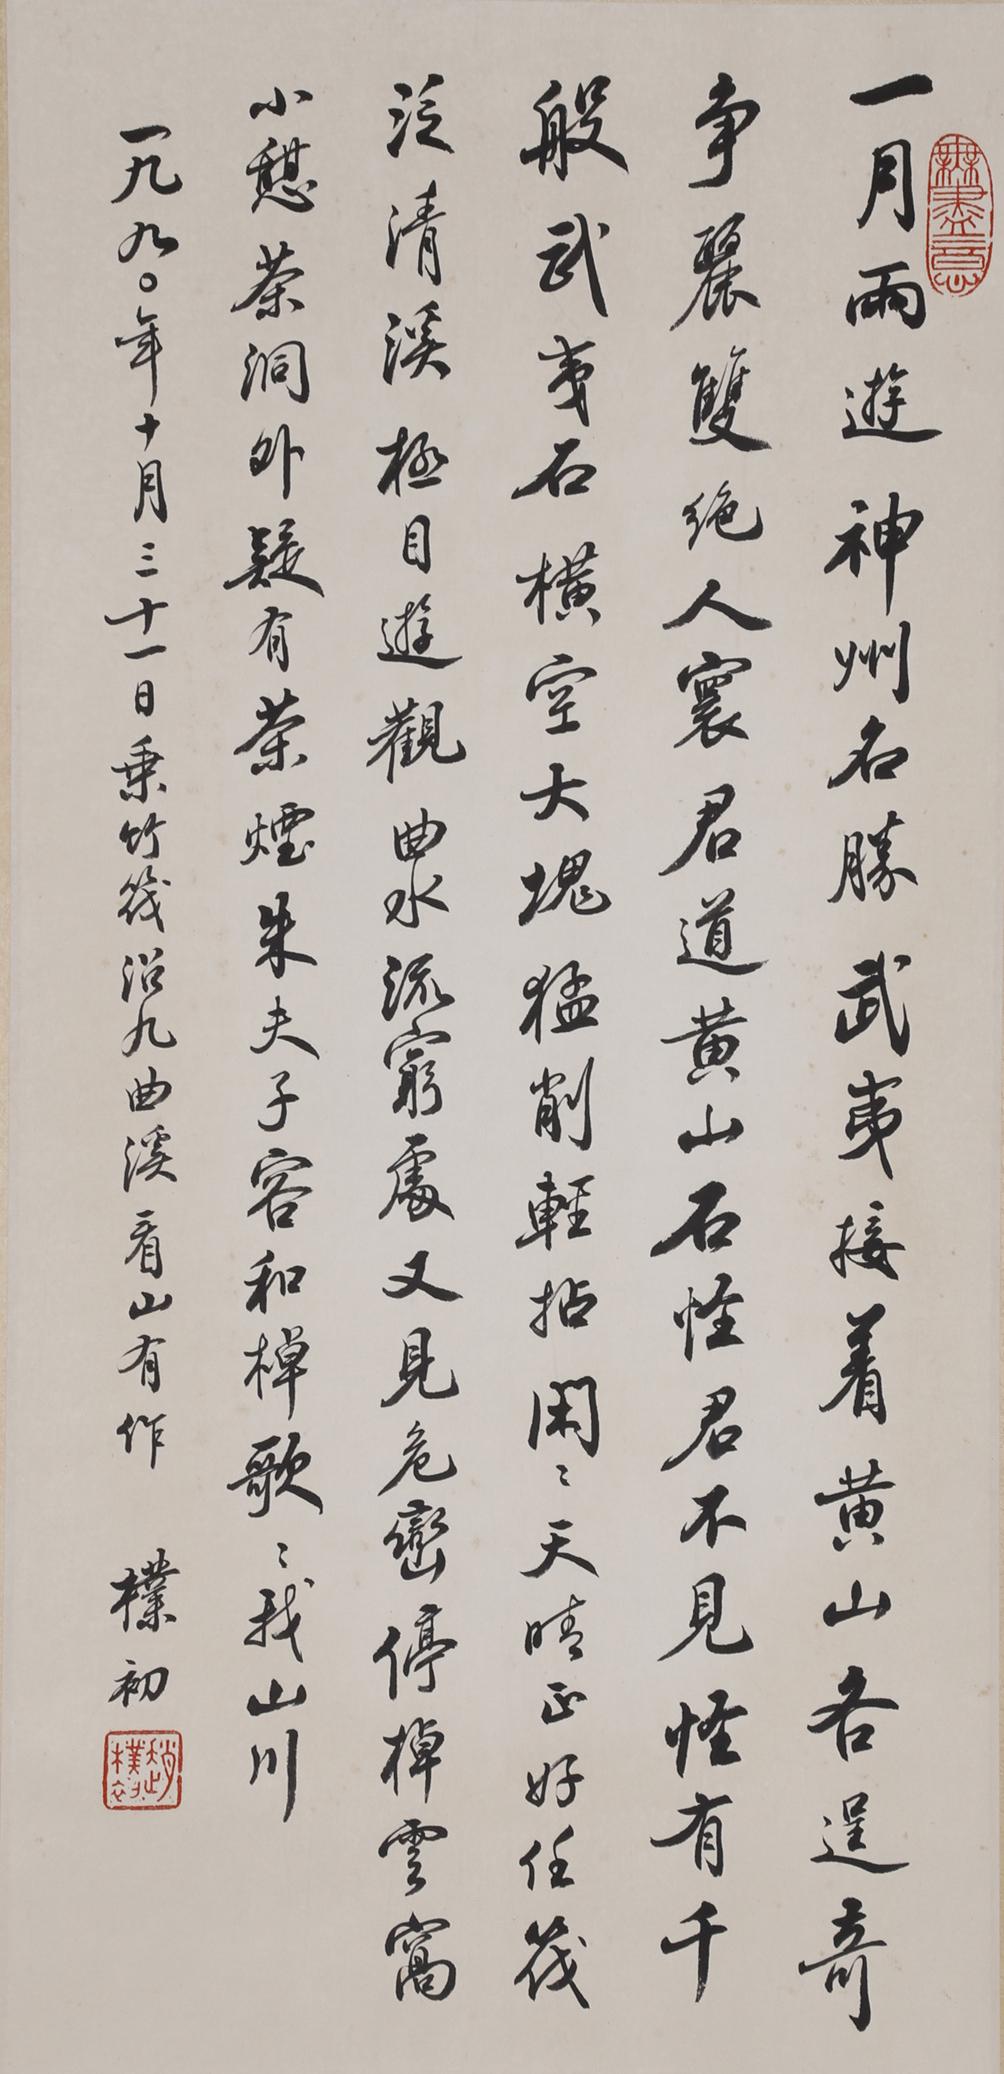 無盡意
一月兩遊神州名勝武夷接着黄山各逞奇
争麗雙絶人寰君道黄山石怪君不見怪有千
般武夷石横空大塊猛削輕拈閑〻天晴正好任筏
泛清溪極目遊觀曲水流窮處又見危巒停棹雲窩
小憩茶洞外疑有茶煙朱夫子容和棹歌〻我山川
一九九〇年十月三十一日乗竹筏沿九曲溪看山有作 樸初
趙樸初